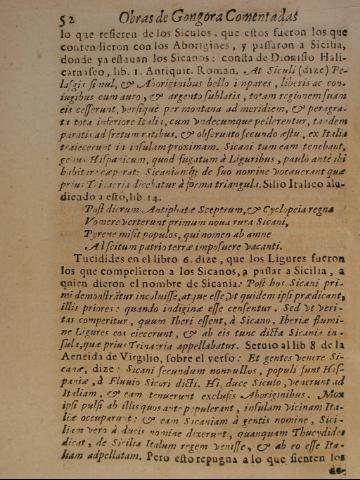 52 Obras de Gongora Comentadas
lo que refieren de los Siculos, que estos fueron los que
contendieron con los Aborigines, y passaron a Sicilia,
donde ya estauan los Sicanos: consta de Dionisio Hali-
carnaseo, lib. 1. Antiquit. Roman. At Siculi (dize) Pe-
lasgis simul, & Aboriginibus bello impares, liberis ac con-
iugibus cum auro, & argento sublatis, totam regionem suam
eis cesserunt, versique per montana ad meridiem, & peragra-
ta tota inferiore Italia, cum vndecumque pellerentur, tandem
paratis ad fretum ratibus, & obseruato secundo æstu, ex Italia
traiecerunt in insulam proximam. Sicani tum eam tenebant,
genus Hispanicum, quod fugatum à Liguribus, paulo ante ibi
habitare cæperat: Sicaniamque de suo nomine vocauerant quæ
prius Trinacria dicebatur à forma triangula. Silio Italico alu-
diendo a esto, lib. 14.
Post dirum Antiphatæ Sceptrum, & Cyclopeia regna
Vomere verterunt primum noua rura Sicani,
Pyrene misit populos, qui nomen ab amne
Ascitum patrio terræ imposuere vacanti.
Tucidides en el libro 6. dize, que los Ligures fueron
los que compelieron a los Sicanos, a passar a Sicilia, a
quien dieron el nombre de Sicania: Post hos Sicani pri-
mi demonstrãtur incoluisse, atque esse, vt quidem ipsi prædicant,
illis priores: quando indiginæ esse censentur. Sed vt veri-
tas comperitur, quum Iberi essent, à Sicano, Iberiæ flumi-
ne Ligures eos eiecerunt, & ab eis tunc dicta Sicania in-
sula, quæ prius Trinacria appellabatur. Seruio al lib 8 de la
Aeneida de Virgilio, sobre el verso: Et gentes venere Si-
canæ, dize: Sicani secundum nonnullos, populi sunt Hispa-
niæ, à Fluuio Sicori dicti. Hi, duce Siculo, venerunt ad
Italiam, & eam tenuerunt exclusis Aboriginibus. Mox
ipsi pulsi ab illis quos ante pepulerant, insulam vicinam Ita-
liæ occuparunt: & eam Sicaniam à gentis nomine, Sici-
liam verò à ducis nomine dixerunt, quanquam Thucydides
dicat, de Sicilia Italum regem venisse, & ab eo esse Ita-
liam adpellatam. Pero esto repugna a lo que sienten los
de-